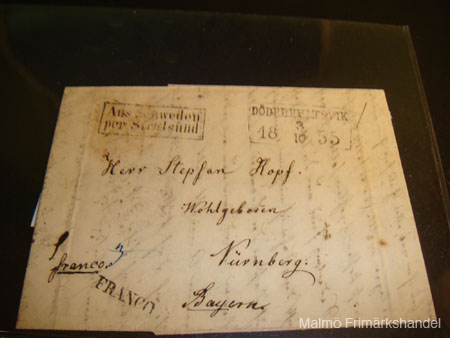 Aus Schweden
per Stralsund
DÖDERHULTSVIK
18 3/10 35
Herr Stephan Hopf.
Wohlgeboren
Nürnberg.
Bayern
franco
FRANCO
Malmö Frimärkshandel